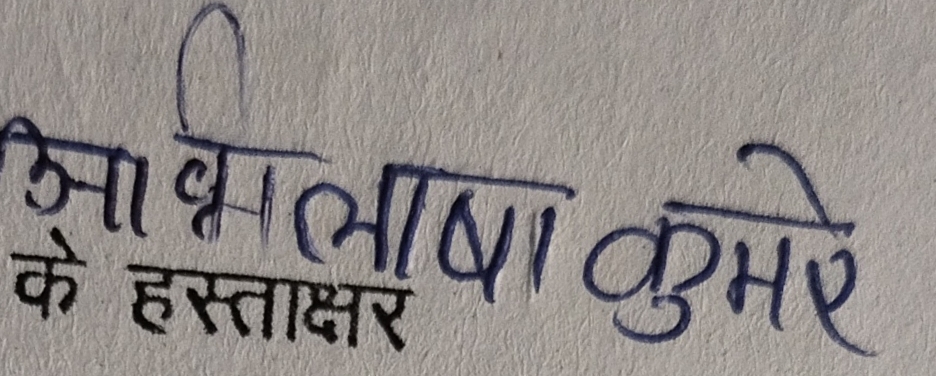 अभिलाषा कुमरे
के हस्ताक्षर